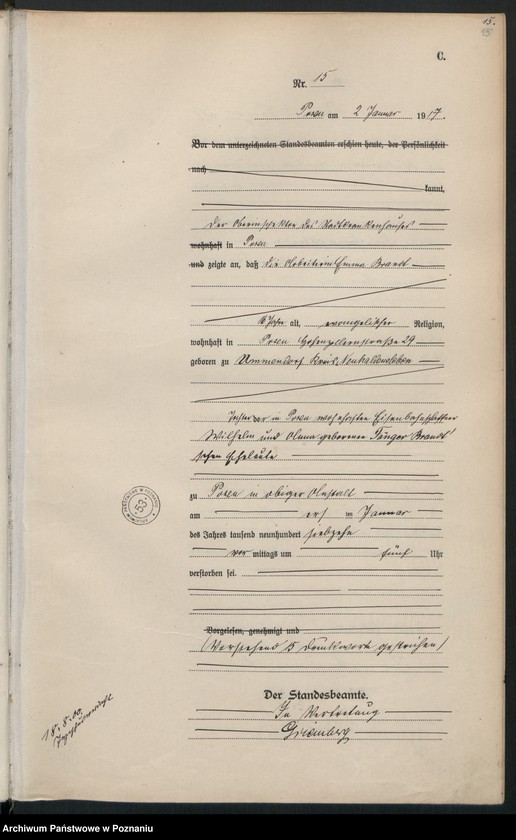 15.
15
C.
Nr. 15
Posen am 2 Januar 1917.
Vor dem unterzeichneten Standesbeamten erschien heute, der Persönlichkeit
nach
kannt,
Der Oberinspektor des Stadtkrankenhauses
wohnhaft in Posen
und zeigte an, daß die Arbeiterin Emma Brandt
16 Jahre alt, evangelischer Religion,
wohnhaft in Posen Hohenzollernstraße 29
geboren zu Ummendorf Kreis Neuhaldensleben
Tochter der in Posen wohnhaften Eisenbahnschaffner
Wilhelm und Anna geborenen Brandt'
schen Eheleute
zu Posen in obiger Anstalt
am ersten Januar
des Jahres tausend neunhundert siebzehn
vor mittags um fünf Uhr
verstorben sei.
Vorgelesen, genehmigt und
(Vorstehend 15 Druckworte gestrichen)
Der Standesbeamte.
In Vertretung
ARCHIWUM PAŃSTWOWE W POZNANIU
53
18.8.00.
Archiwum Państwowe w Poznaniu